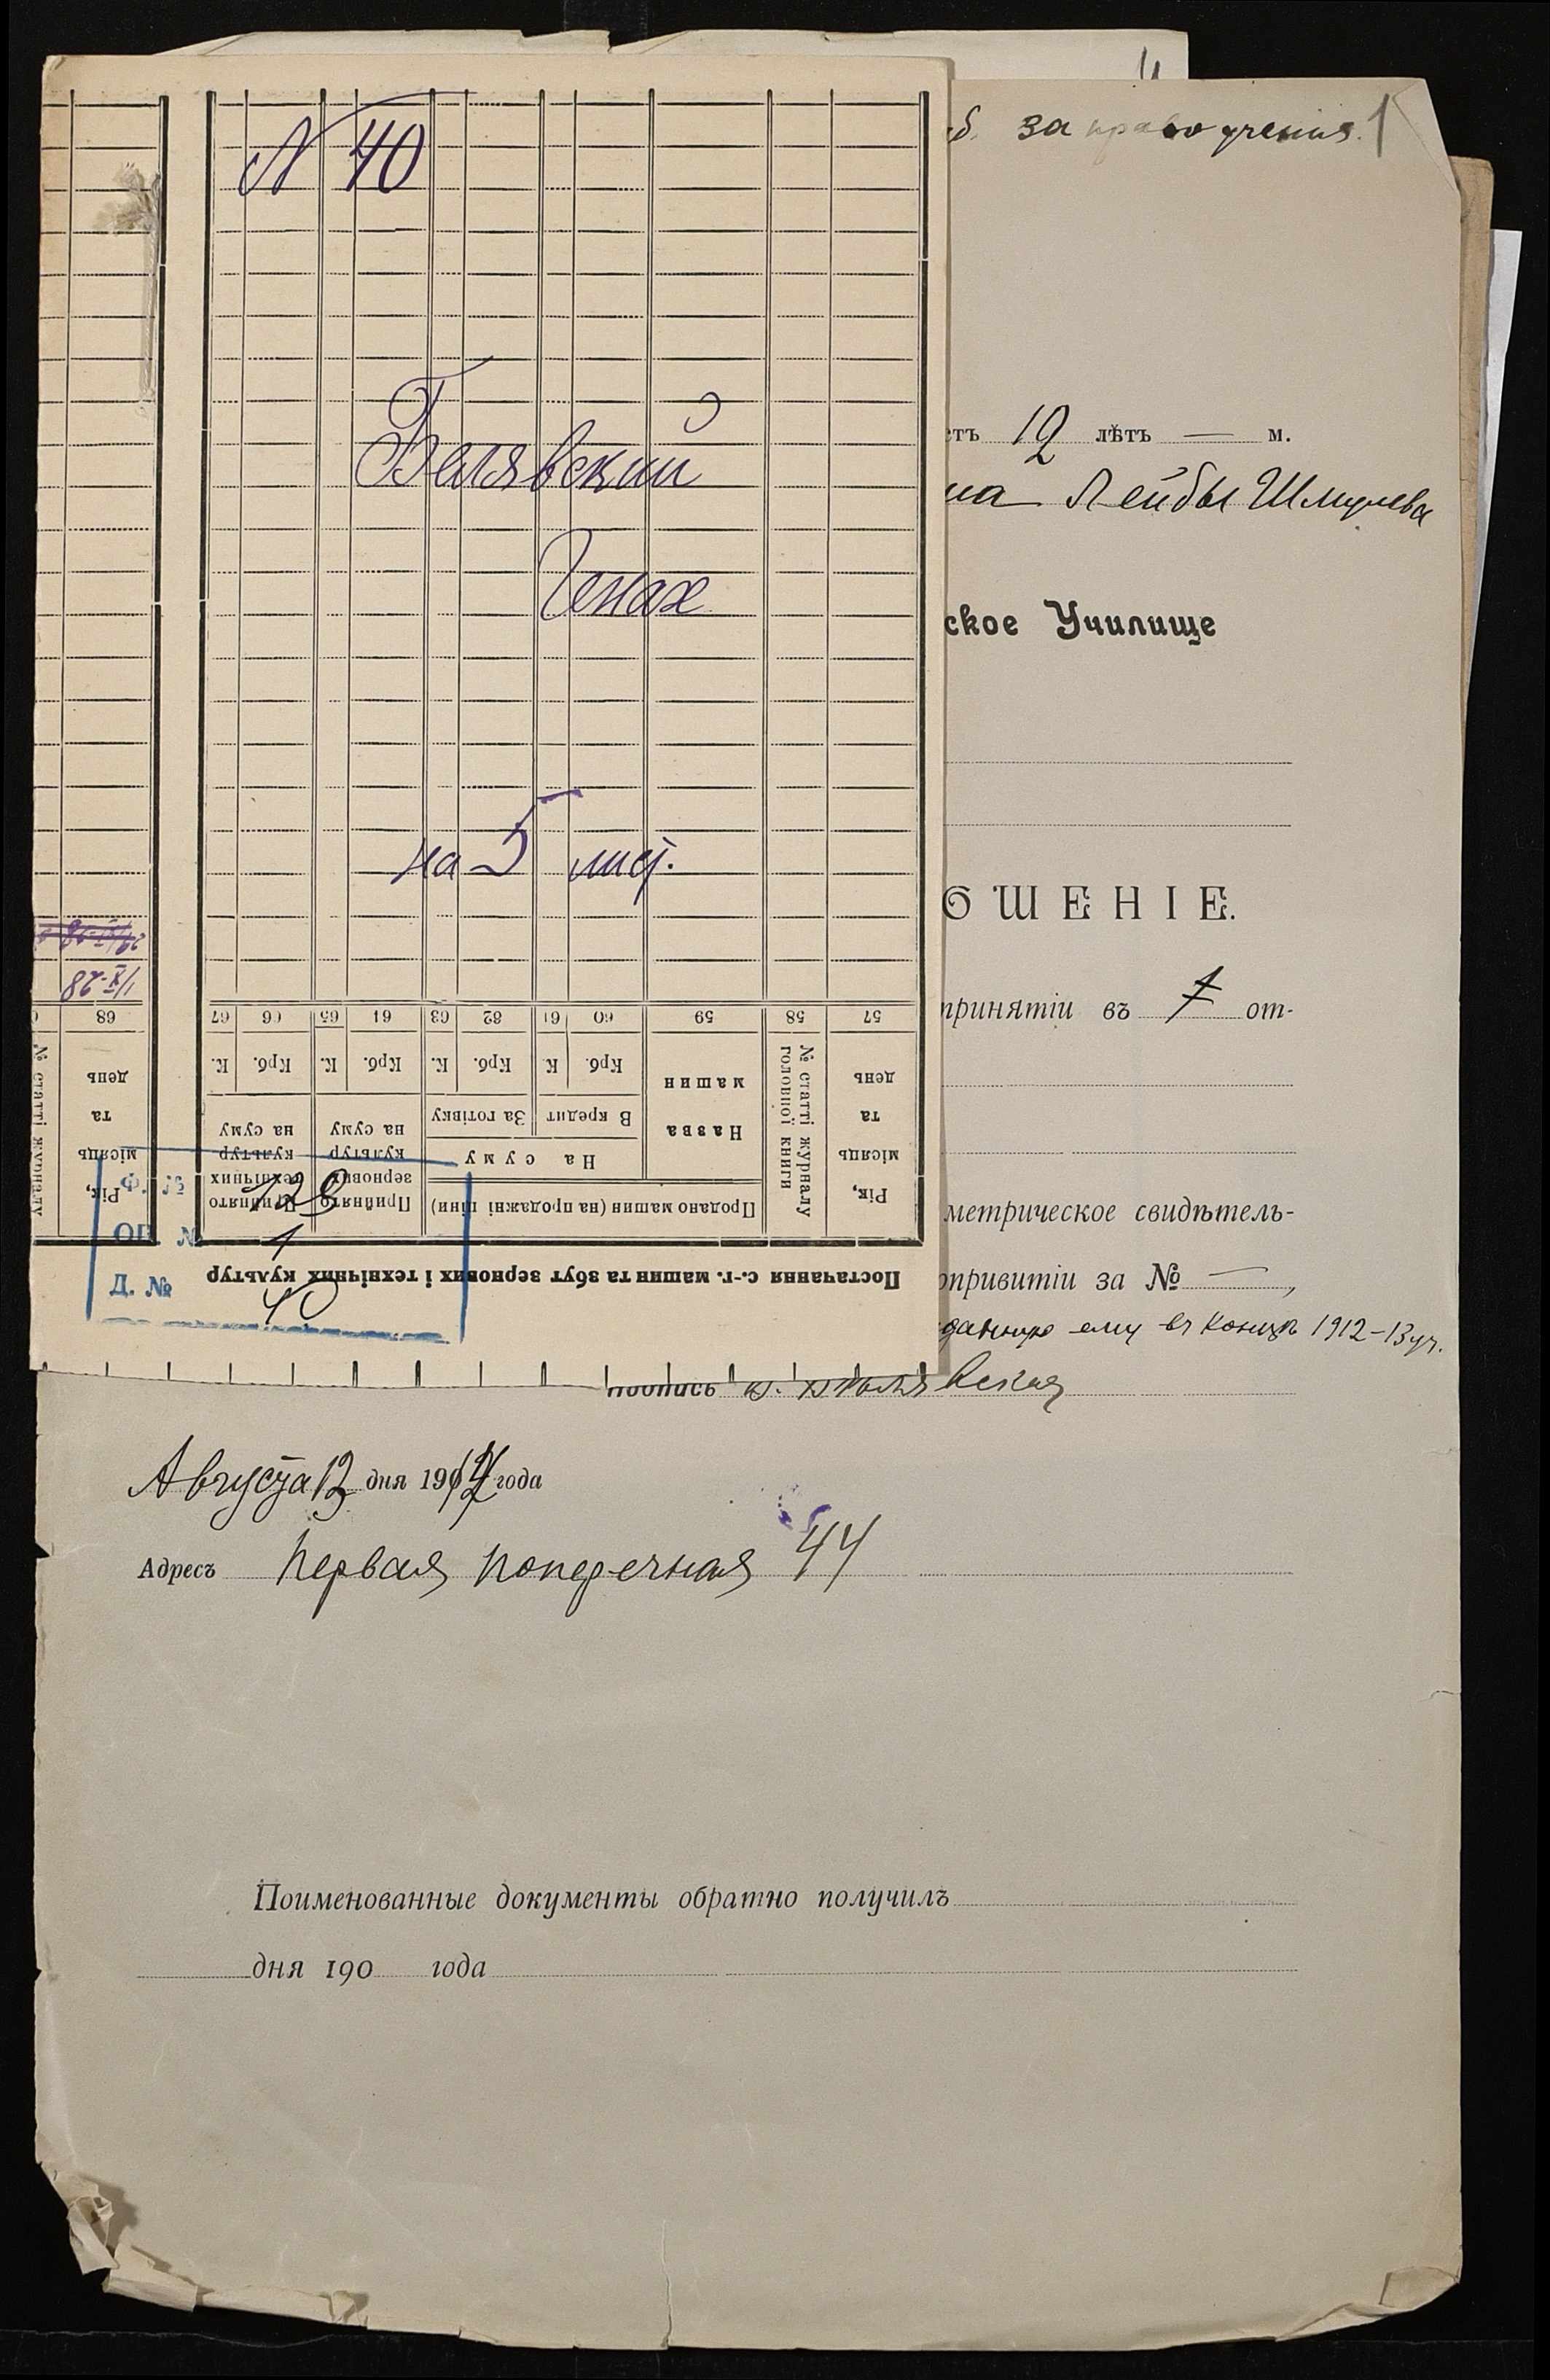 N 40
Белявский
Генах
на 5 лист.
1/X-28
57 58 59 60 61 62 63 64 65 66 67
68
Рік, місяць та день
№ статті журналу головної книги
Назва машин
Продано машин (на продажні ціни)
На суму
В кредит
За готівку
Крб. К. Крб. К. Крб. К. Крб. К.
Прийнято зернових культур на суму
Прийнято технічних культур на суму
Рік, місяць та день
№ статті журналу
Постачання с.-г. машин та збут зернових і технічних культур
Ф. № 128
ОП. № 1
Д. № 40
за право учения. 1
12 лѣтъ — м.
на Лейбы Шмулева
ское Училище
ОШЕНІЕ.
принятіи въ 7 от-
метрическое свидѣтель-
опривитіи за № —,
данную ему въ концѣ 1912-13 уч.
Подпись
Августа 13 дня 191 года
Адресъ Первая поперечная 44
Поименованные документы обратно получилъ
дня 190 года